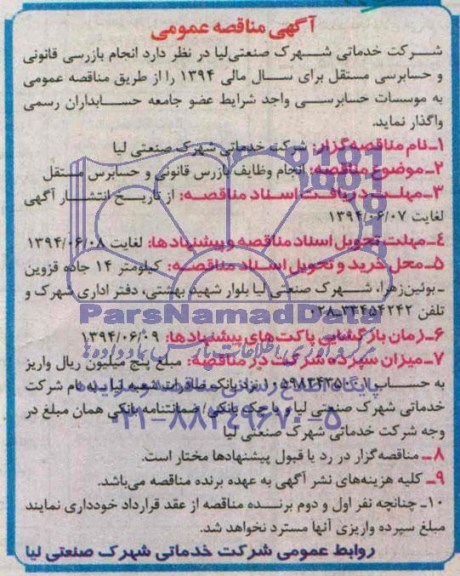 آگهی مناقصه عمومی
شرکت خدماتی شهرک صنعتی لیا در نظر دارد انجام بازرسی قانونی
و حسابرسی مستقل برای سال مالی ۱۳۹۴ را از طریق مناقصه عمومی
به موسسات حسابرسی واجد شرایط عضو جامعه حسابداران رسمی
واگذار نماید.
۱-نام مناقصه‌گزار: شرکت خدماتی شهرک صنعتی لیا
۲-موضوع مناقصه: انجام وظایف بازرس قانونی و حسابرس مستقل
۳-مهلت دریافت اسناد مناقصه: از تاریخ انتشار آگهی
لغایت ۱۳۹۴/۰۶/۰۷
۴-مهلت تحویل اسناد مناقصه و پیشنهادها: لغایت ۱۳۹۴/۰۶/۰۸
۵-محل خرید و تحویل اسناد مناقصه: کیلومتر ۱۴ جاده قزوین
-بوئین‌زهرا، شهرک صنعتی لیا بلوار شهید بهشتی، دفتر اداری شهرک و
تلفن ۳۳۴۵۴۲۴۲-۰۲۸
ParsNamadData
۶-زمان بازگشایی پاکت‌های پیشنهادها: ۱۳۹۴/۰۶/۰۹
۷-میزان سپرده شرکت در مناقصه: مبلغ پنج میلیون ریال واریز
به حساب نزد بانک صادرات شعبه لیا به نام شرکت
خدماتی شهرک صنعتی لیا و یا چک بانکی/ ضمانتنامه بانکی همان مبلغ در
۰۲۱-۸۸۳۴۹۶۷۰-۵
وجه شرکت خدماتی شهرک صنعتی لیا
۸- مناقصه‌گزار در رد یا قبول پیشنهادها مختار است.
۹- کلیه هزینه‌های نشر آگهی به عهده برنده مناقصه می‌باشد.
۱۰- چنانچه نفر اول و دوم برنده مناقصه از عقد قرارداد خودداری نمایند
مبلغ سپرده واریزی آنها مسترد نخواهد شد.
روابط عمومی شرکت خدماتی شهرک صنعتی لیا